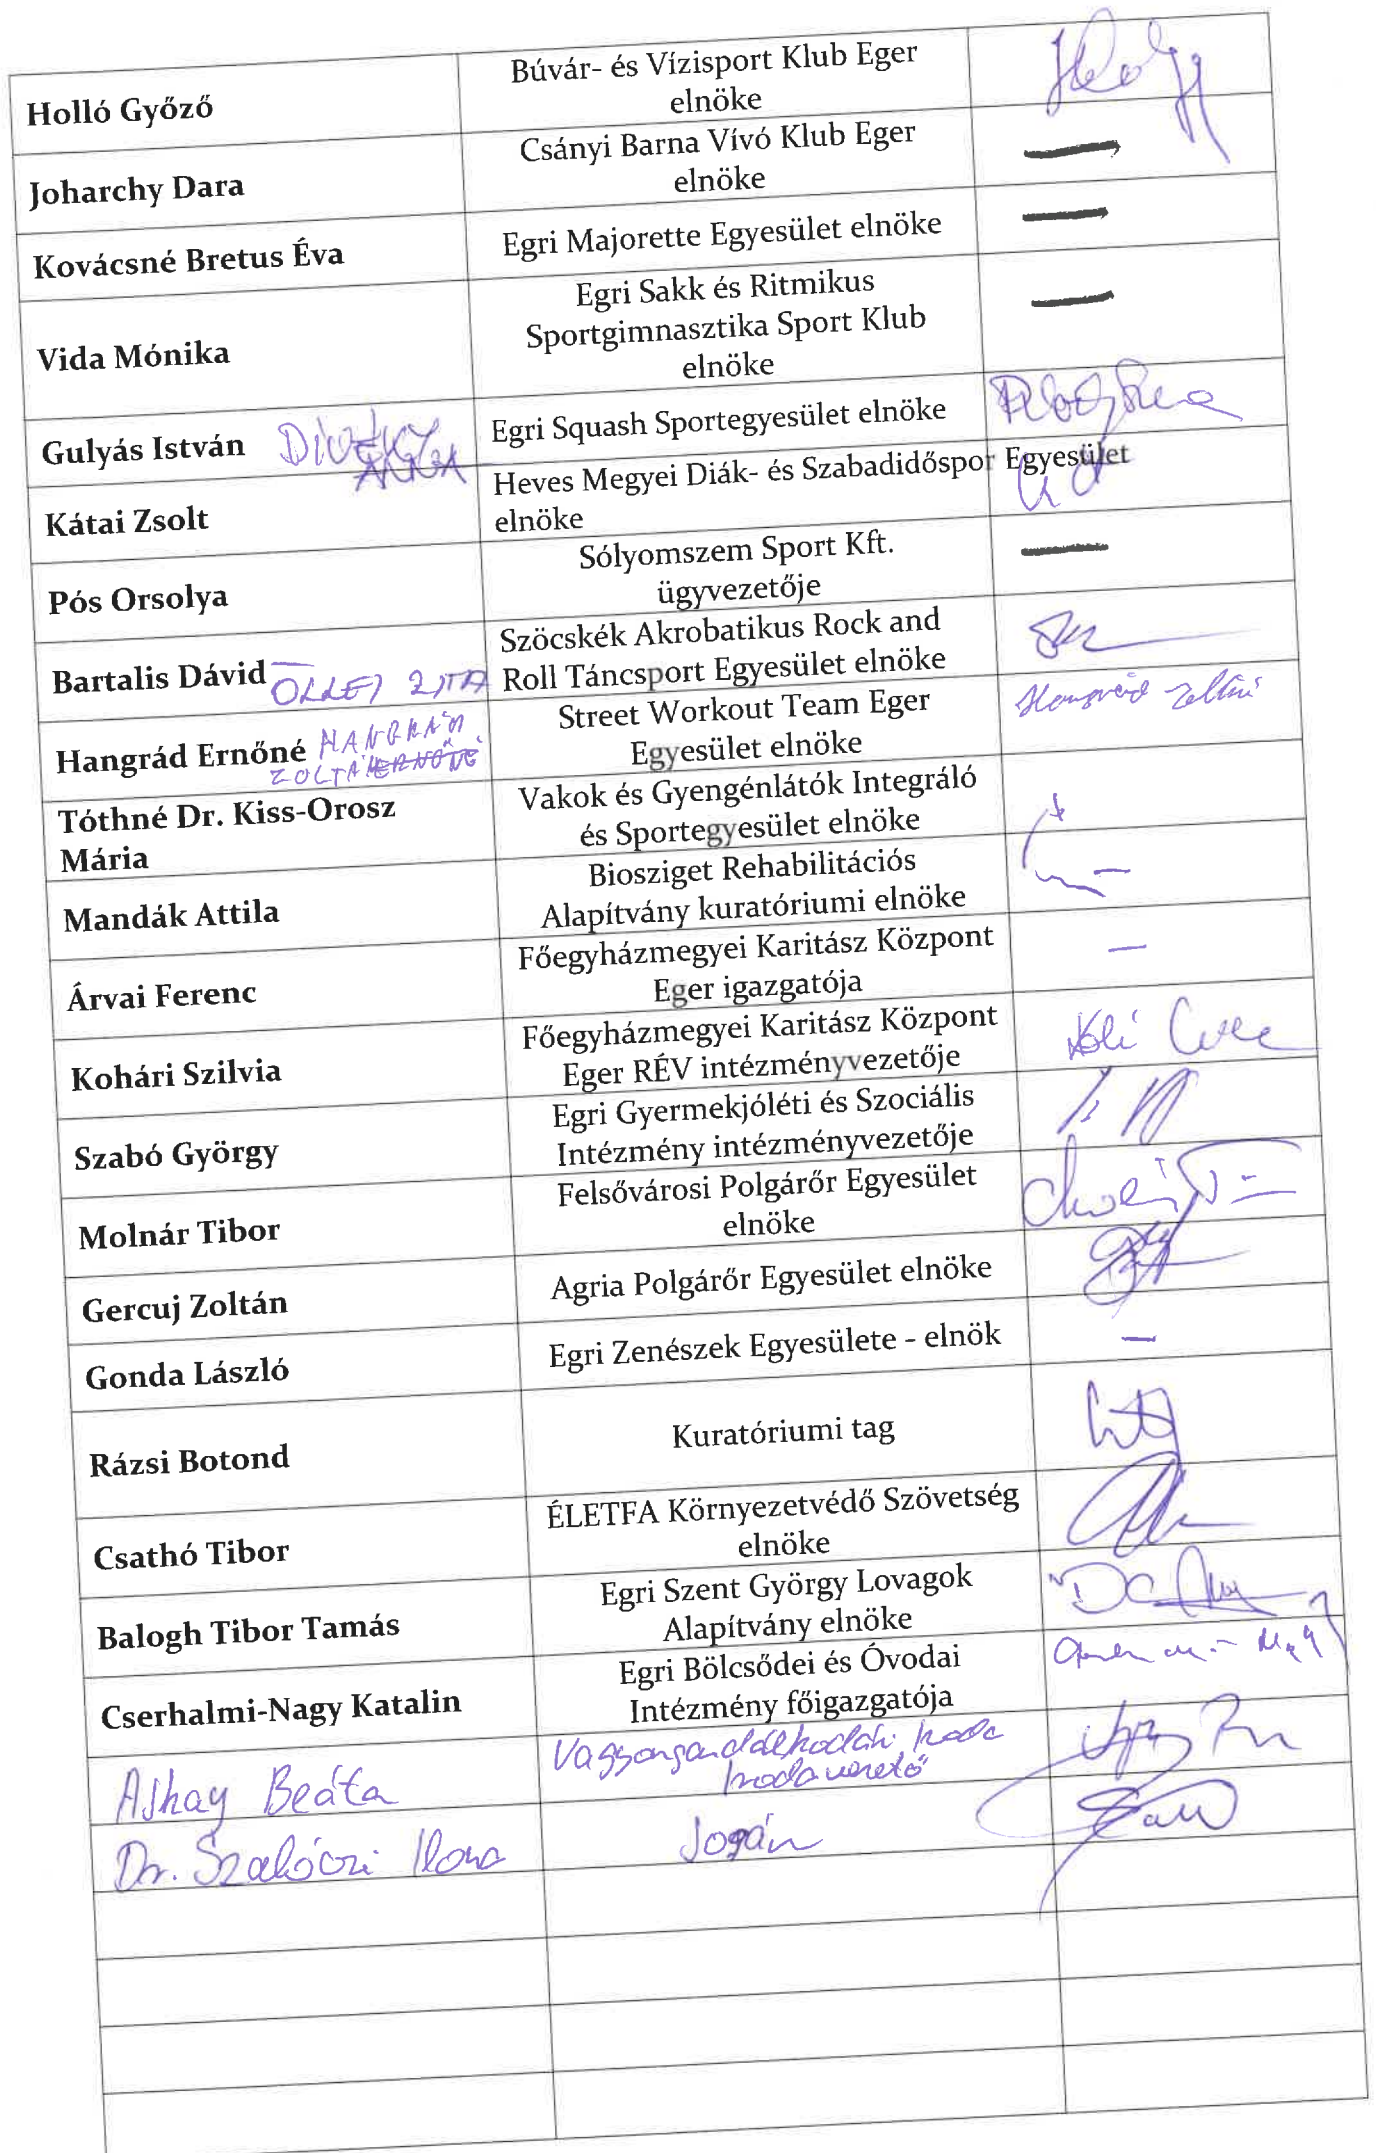 Holló Győző
Búvár- és Vízisport Klub Eger
elnöke
Joharchy Dara
Csányi Barna Vívó Klub Eger
elnöke
Kovácsné Bretus Éva
Egri Majorette Egyesület elnöke
Vida Mónika
Egri Sakk és Ritmikus
Sportgimnasztika Sport Klub
elnöke
Gulyás István
ANNA
Egri Squash Sportegyesület elnöke
Kátai Zsolt
Heves Megyei Diák- és Szabadidőspor Egyesület
elnöke
Pós Orsolya
Sólyomszem Sport Kft.
ügyvezetője
Bartalis Dávid
Szöcskék Akrobatikus Rock and
Roll Táncsport Egyesület elnöke
Hangrád Ernőné
Street Workout Team Eger
Egyesület elnöke
Tóthné Dr. Kiss-Orosz
Mária
Vakok és Gyengénlátók Integráló
és Sportegyesület elnöke
Mandák Attila
Biosziget Rehabilitációs
Alapítvány kuratóriumi elnöke
Árvai Ferenc
Főegyházmegyei Karitász Központ
Eger igazgatója
Kohári Szilvia
Főegyházmegyei Karitász Központ
Eger RÉV intézményvezetője
Szabó György
Egri Gyermekjóléti és Szociális
Intézmény intézményvezetője
Molnár Tibor
Felsővárosi Polgárőr Egyesület
elnöke
Gercuj Zoltán
Agria Polgárőr Egyesület elnöke
Gonda László
Egri Zenészek Egyesülete - elnök
Rázsi Botond
Kuratóriumi tag
Csathó Tibor
ÉLETFA Környezetvédő Szövetség
elnöke
Balogh Tibor Tamás
Egri Szent György Lovagok
Alapítvány elnöke
Cserhalmi-Nagy Katalin
Egri Bölcsődei és Óvodai
Intézmény főigazgatója
Beáta
Vagyongazdálkodási Iroda
Irodavezető
Dr. Szalóczi Ilona